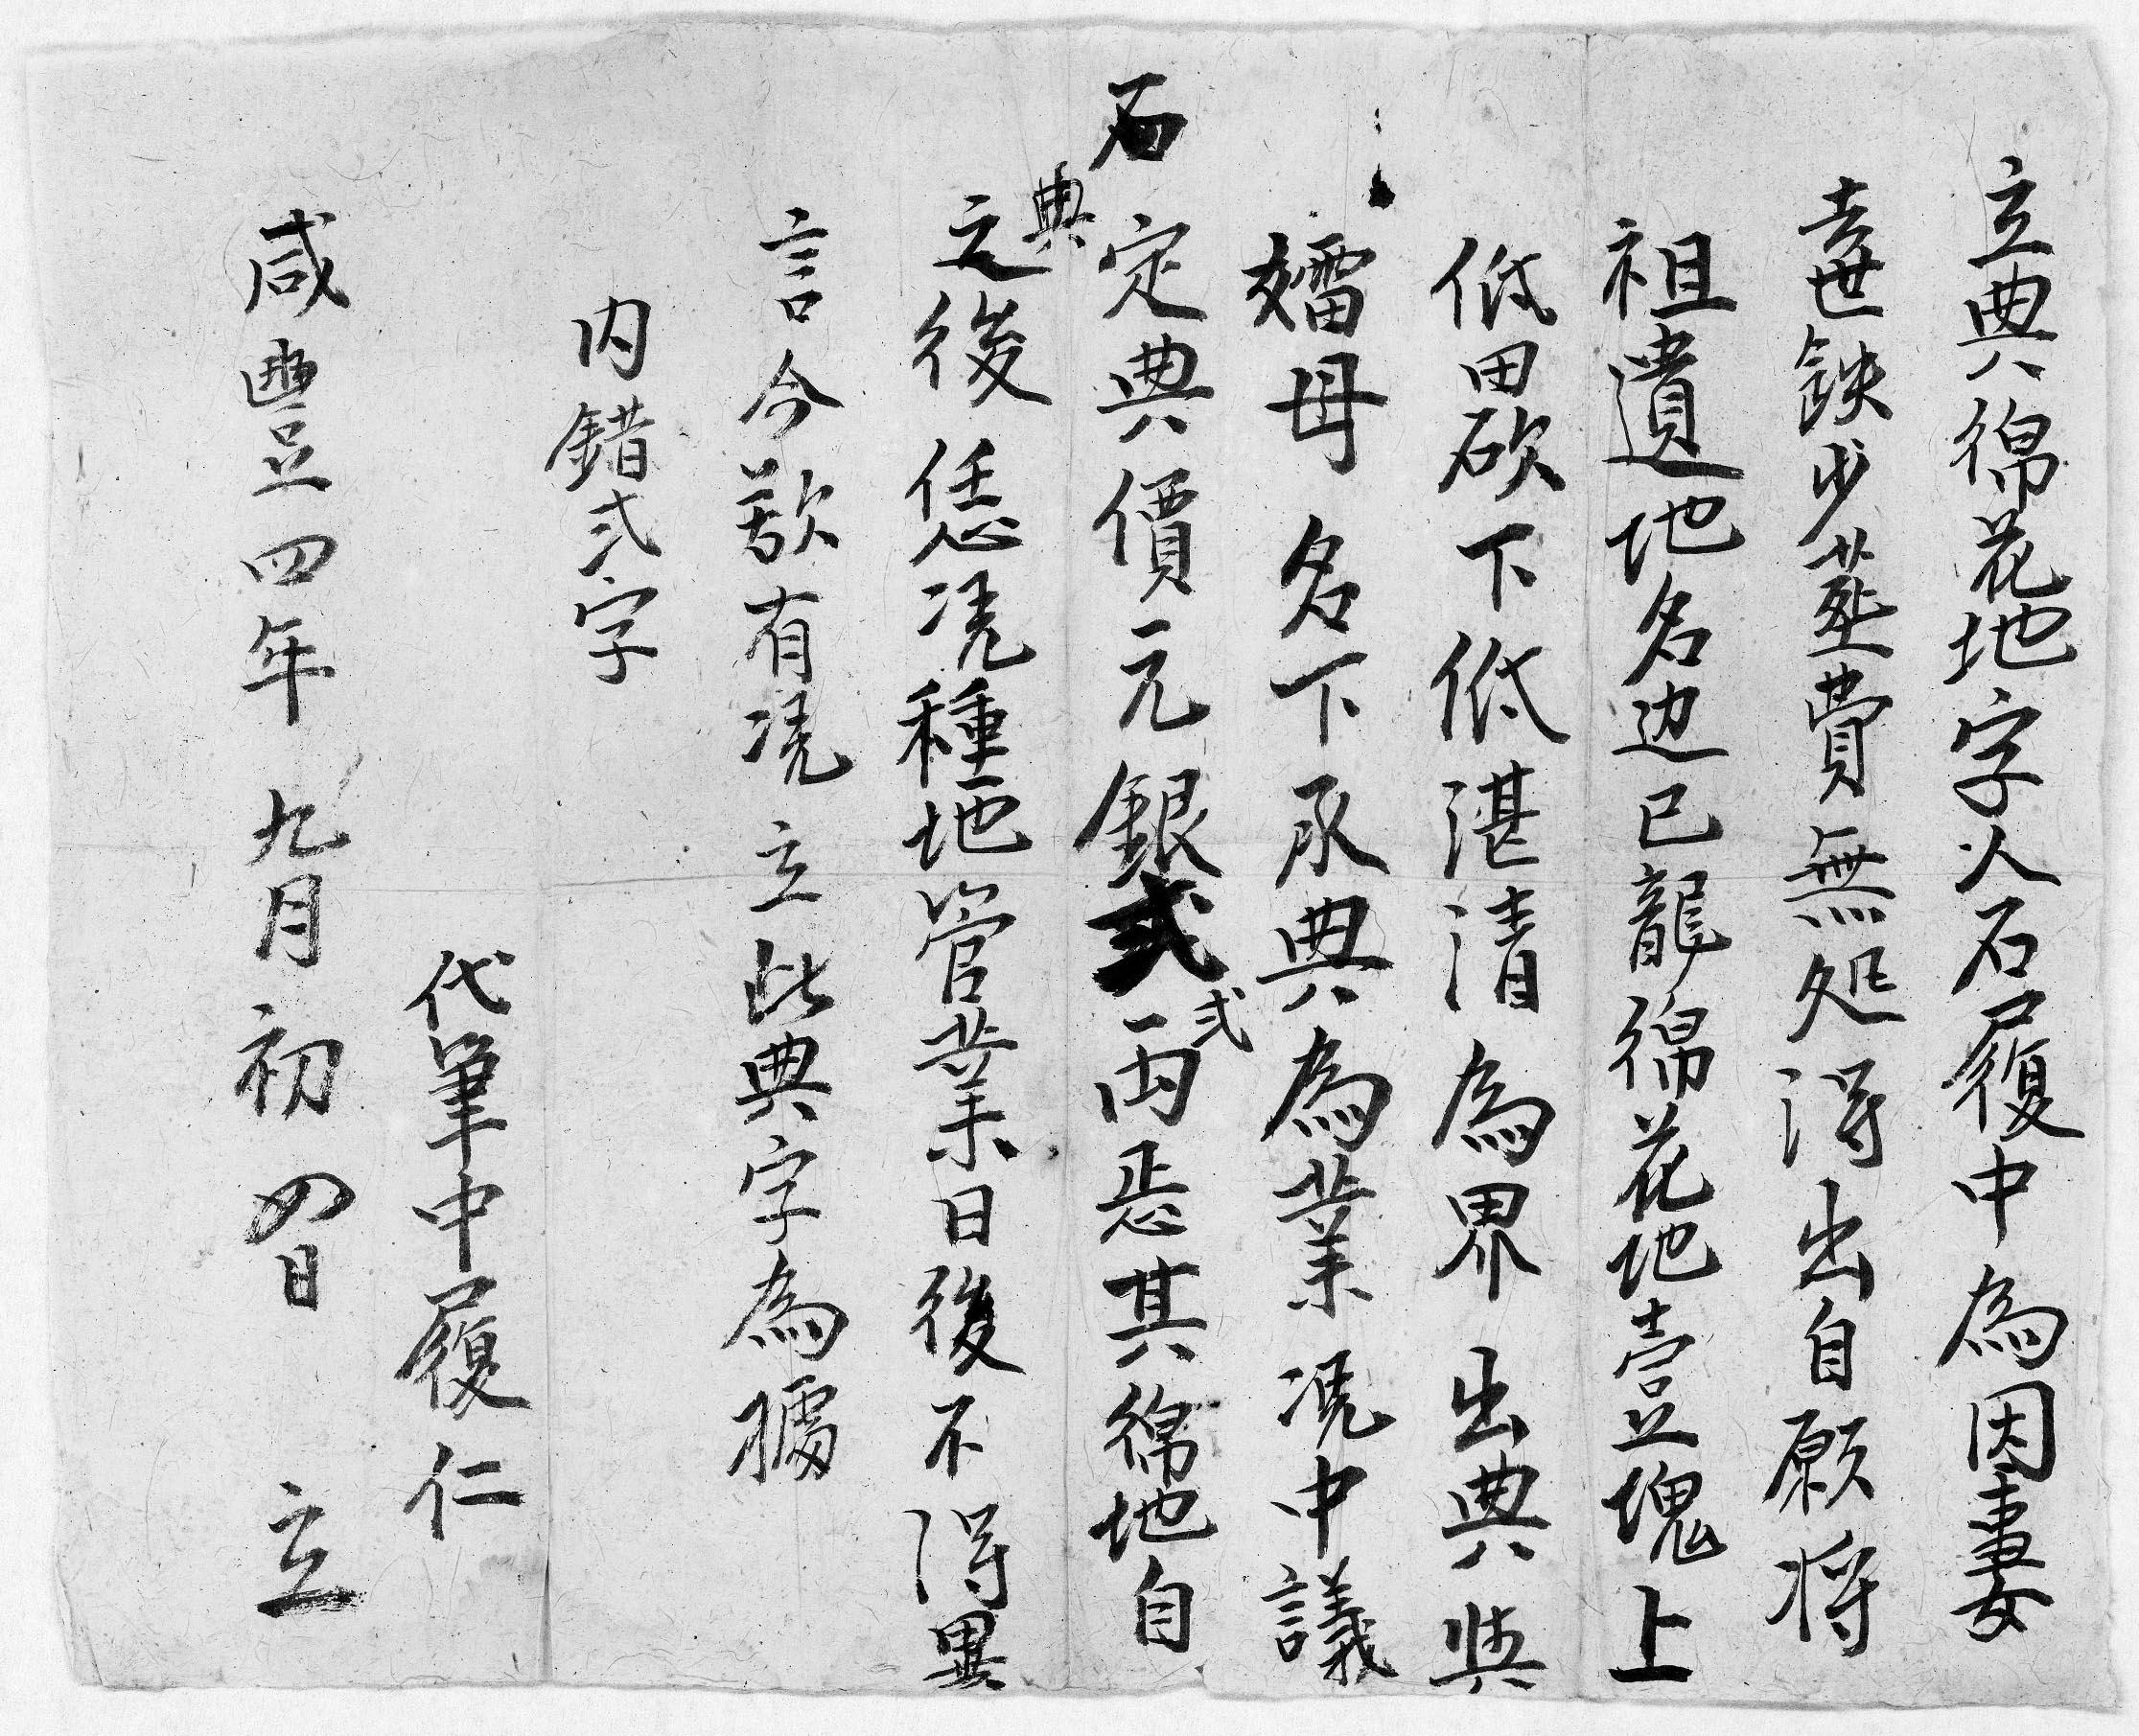 立典綿花地字人石履中為因妻
去世缺少葬費無処得出自愿将
祖遺地名边已龍綿花地壹塊上
低田砍下低湛清為界出典與
嬸母名下承典為業凴中議
石定典價元銀弐弐両恁其綿地自
典之後恁凴種地管業日後不得異
言今欲有凴立此典字為據
内錯弍字
代筆中履仁
咸豐四年九月初四日立